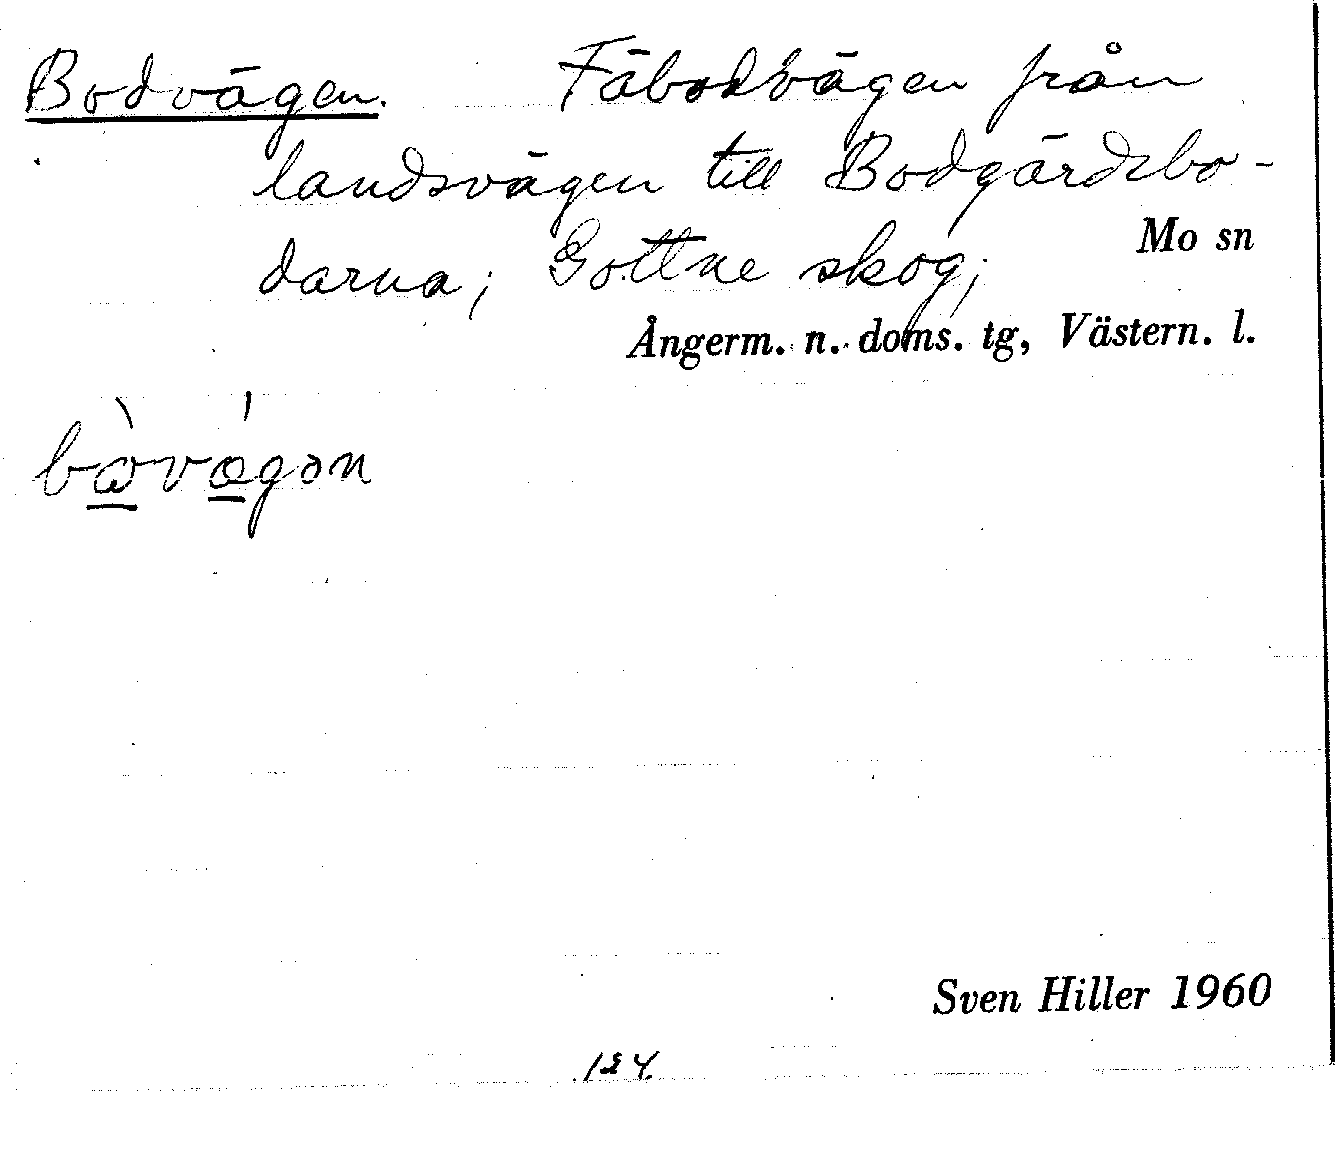 Bodvägen. Fäbodvägen från
landsvägen till Bodgärdsbo-
darna; Gottne skog; Mo sn
Ångerm. n. doms. tg, Västern. l.
Sven Hiller 1960
124